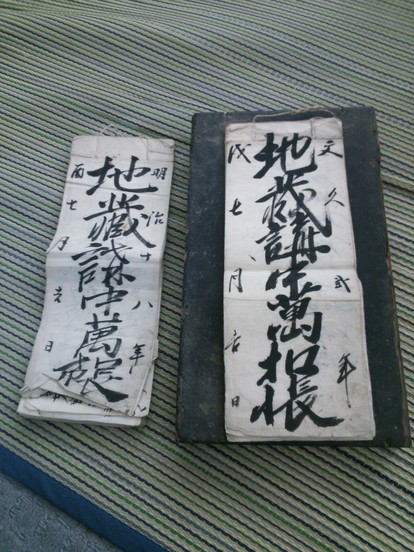 文久弐年
地藏講中萬扣帳
戌七月吉日
明治十八年
地藏講中萬帳
酉七月吉日